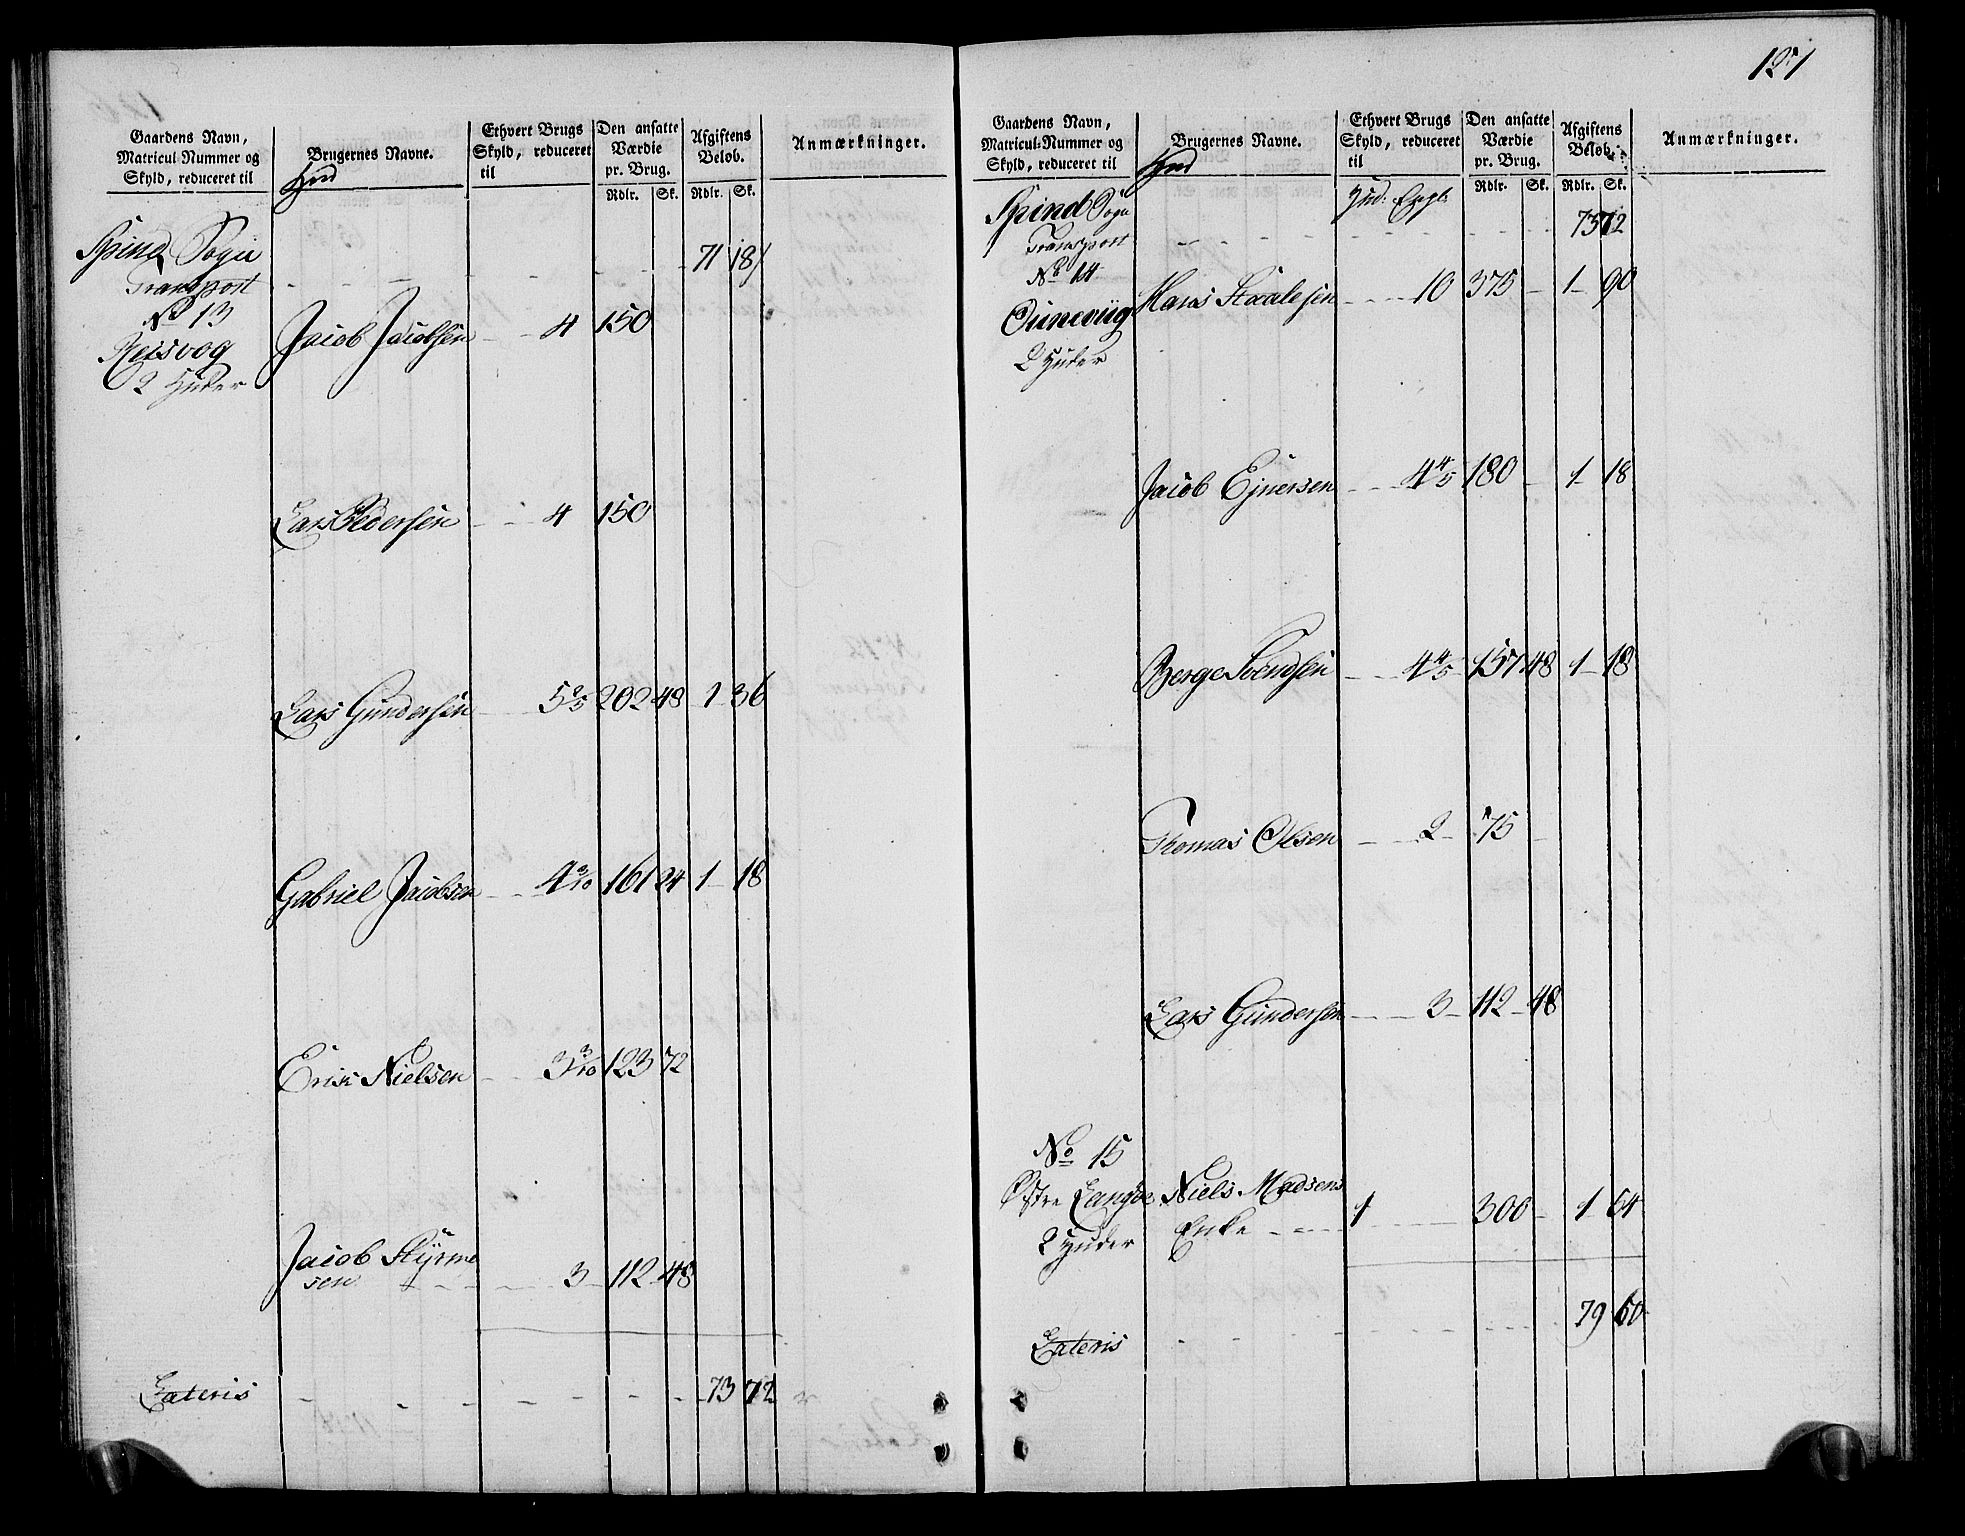 Gaardens Navn, Matricul-Nummer og Skyld, reduceret til
Brugernes Navne.
Ethvert Brugs Skyld, reduceret til
Den ansatte Værdie pr. Brug.
Afgiftens Beløb.
Anmærkninger.
Rdlr. Sk. Rdlr. Sk.
Spind Sogn
Transport 71 18
No 13
Reisvog
2 Huder
Jacob Jacobsen 4 150
Lars Pedersen 4 150
Lars Gundersen 5 2/5 202 48 1 36
Gabriel Jacobsen 4 3/10 161 24 1 18
Erik Nielsen 3 3/10 123 72
Jacob Styrme
sen 3 112 48
Lateris 73 72
121
Gaardens Navn, Matricul-Nummer og Skyld, reduceret til
Brugernes Navne.
Ethvert Brugs Skyld, reduceret til
Den ansatte Værdie pr. Brug.
Afgiftens Beløb.
Anmærkninger.
Rdlr. Sk. Rdlr. Sk.
Spind Sogn
Transport 73 72
No 14
Ounevиg
2 Huder
Hans Staalesen 10 375 1 90
Jacob Ejnersen 4 4/5 180 1 18
Berge Svendsen 4 4/5 157 48 1 18
Thomas Olsen 2 75
Lars Gundersen 3 112 48
No 15
Østre Langøe Niels Madsens
2 Huder Enke 1 300 1 64
Lateris 79 60